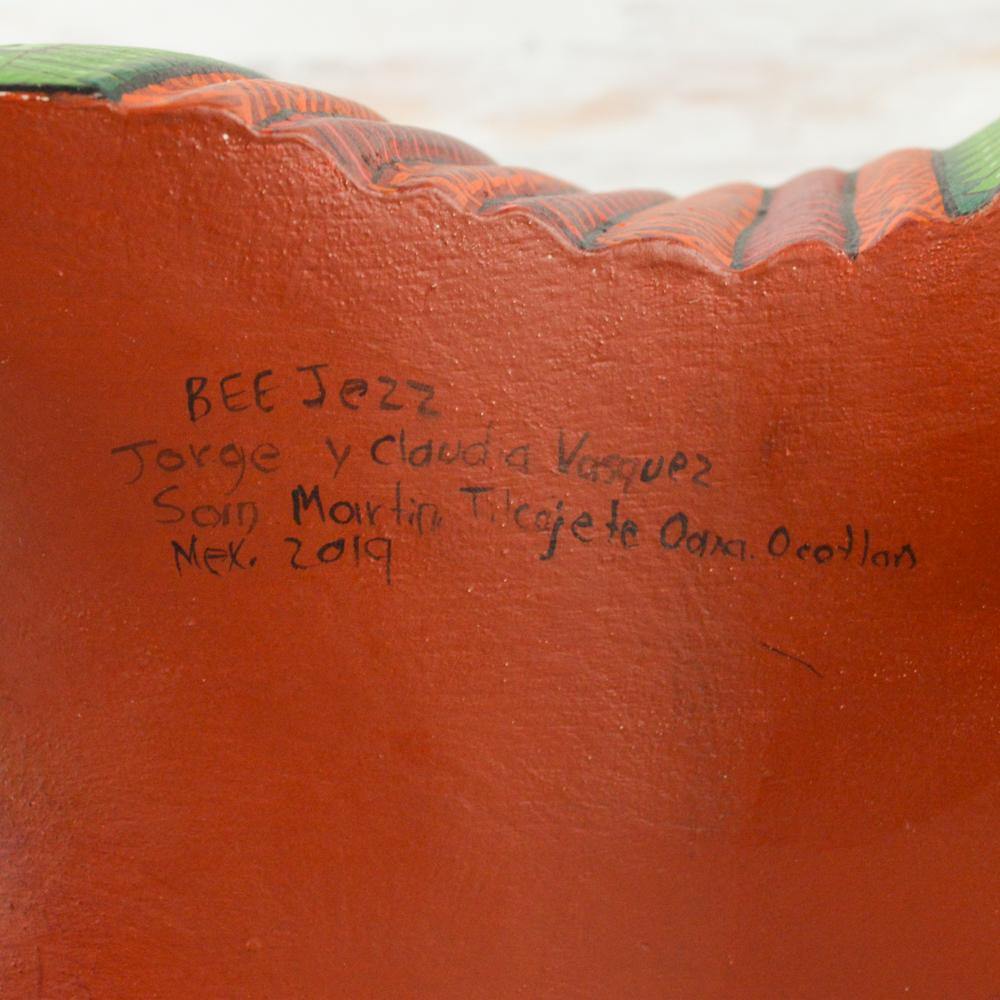 BEE Jezz
Jorge y Claudia Vasquez
San Martin Tilcajete Oaxa. Ocotlan
Mex. 2019